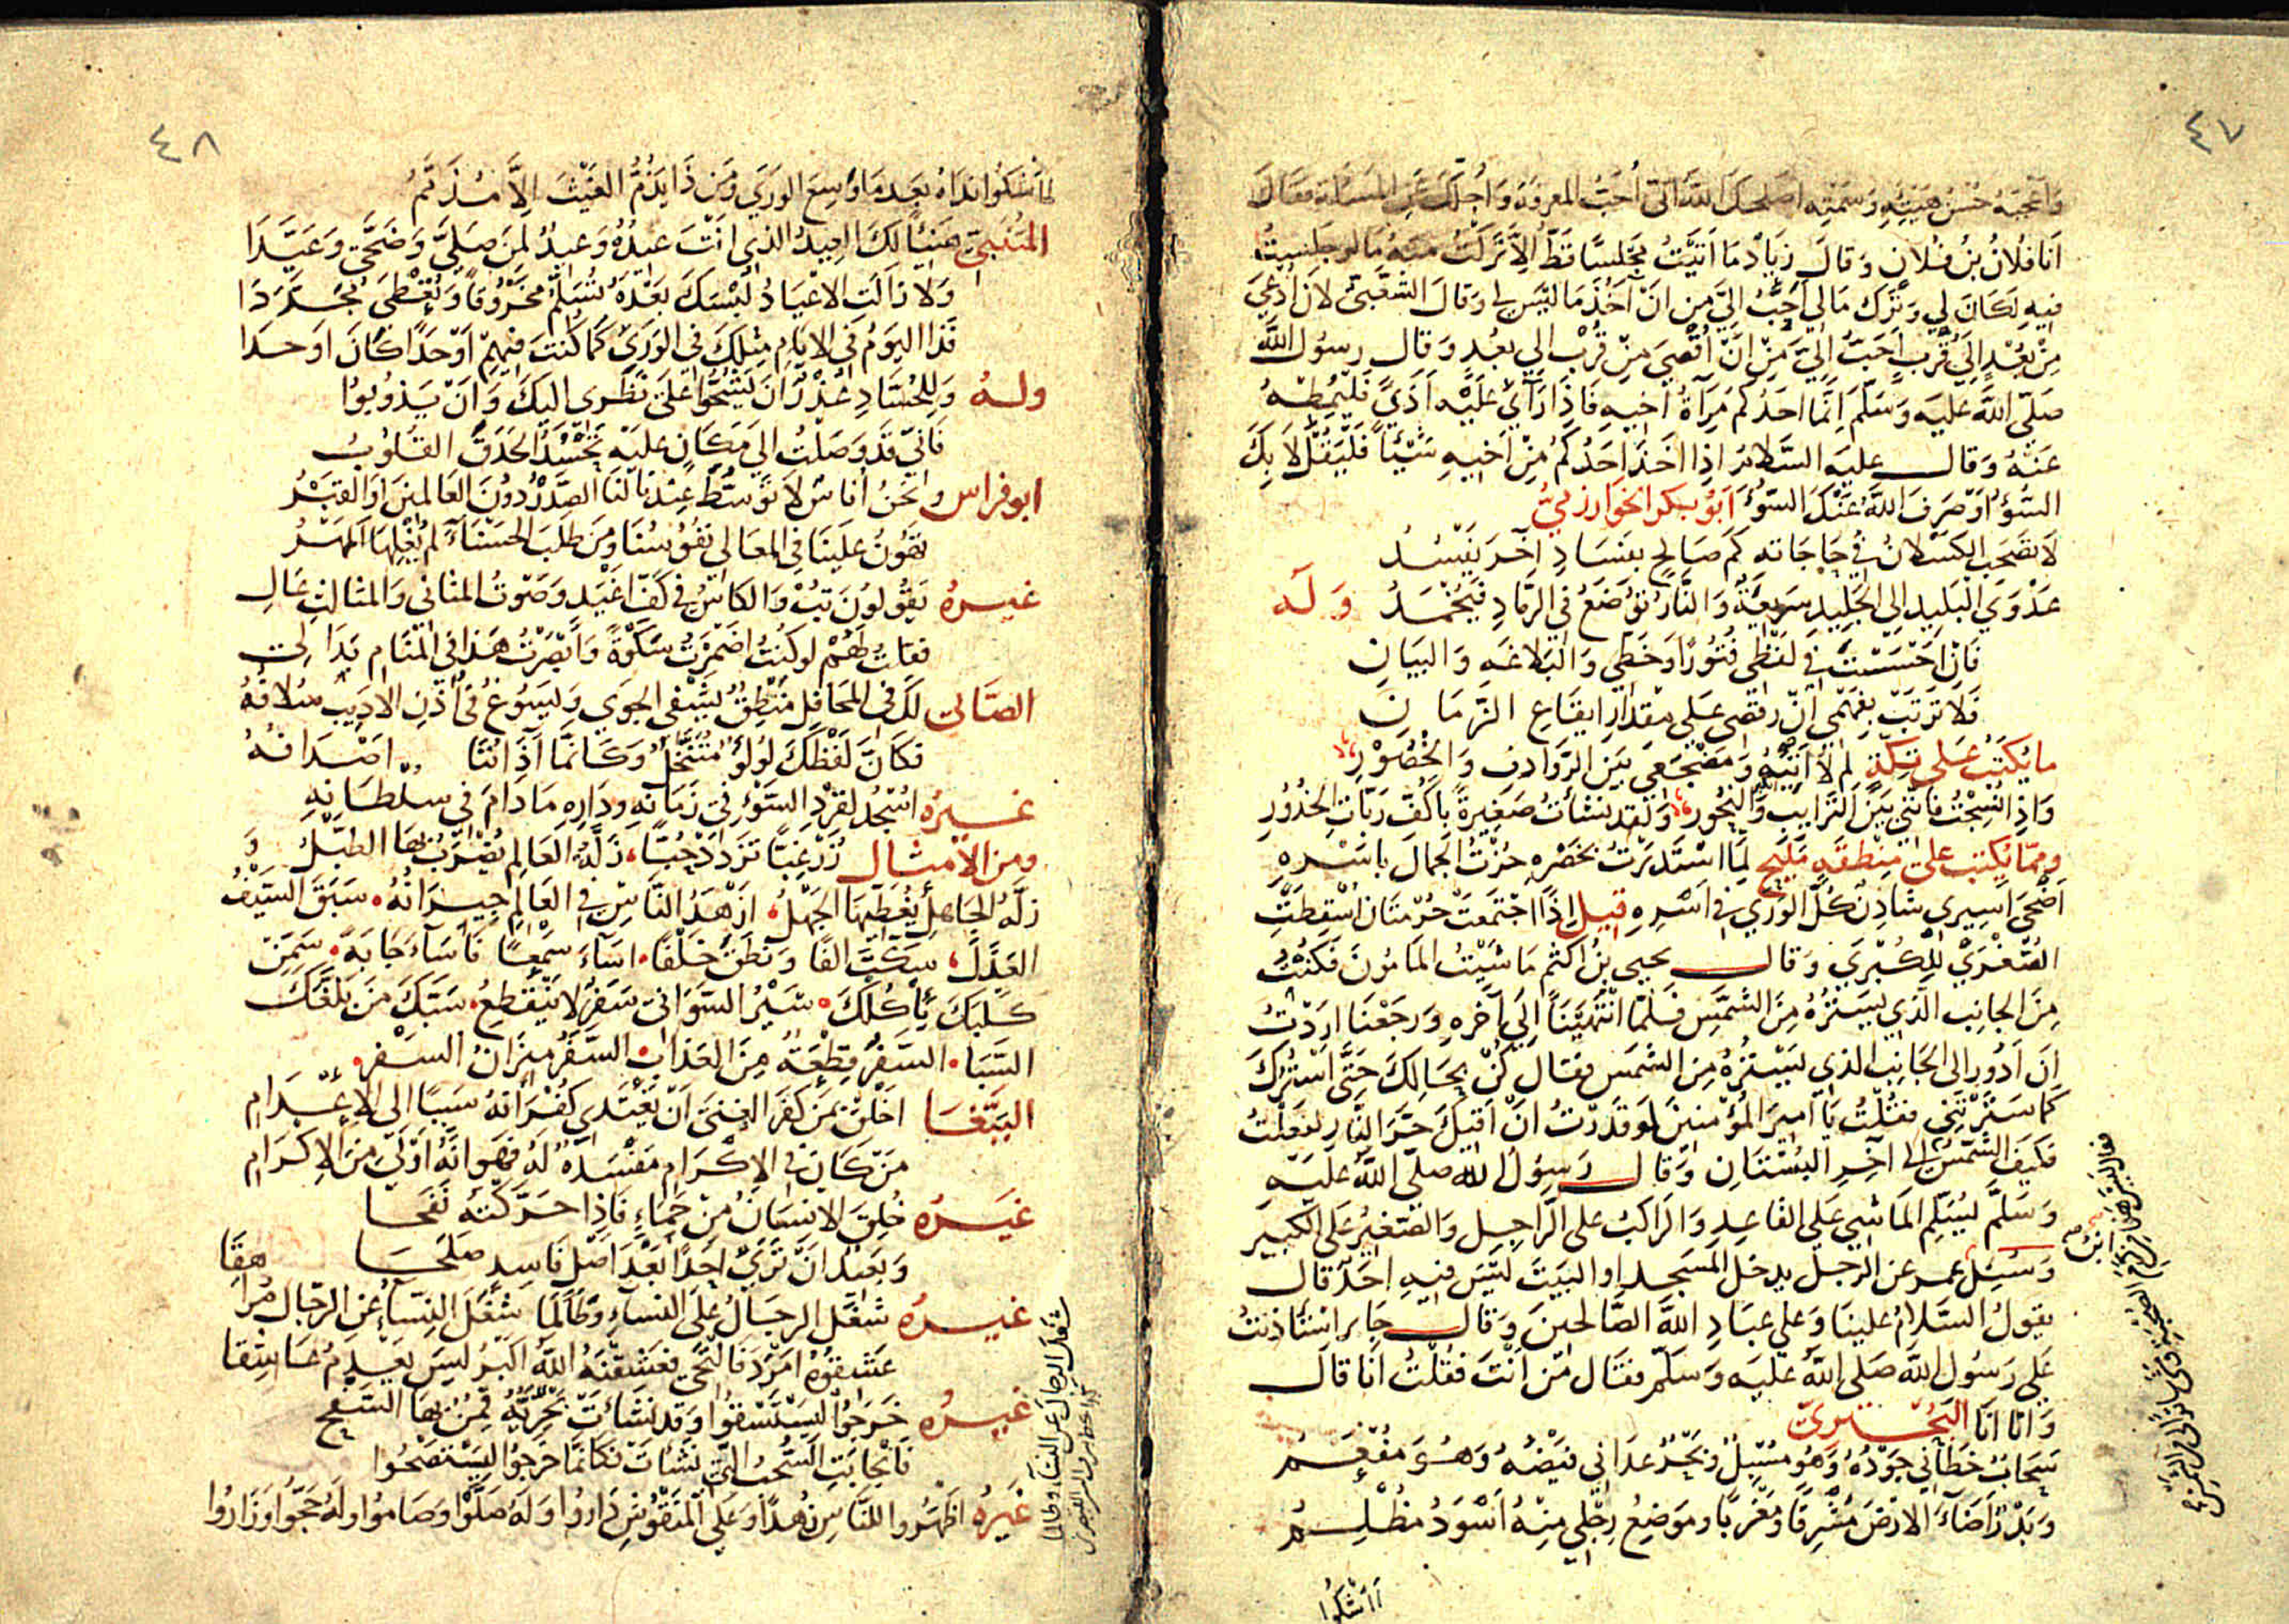 ٤٧
وَاَعْجَبَهُ حُسْنُ هَيْئَتِهِ وَسَمْتِهِ اصلحك اللّه انى اُحبّ المعرفة وَاُجلّك عَنِ المسئلة فقالَ
اَنَا فلانُ بنُ فُلانٍ وَقالَ زيَادٌ مَا اَتَيْتُ مجْلسًا قطّ اِلاَّ تَرَكْتُ منهُ مَا لو جَلسْتُ
فيهِ لكانَ لي وَتَرْك مَا لي اَحَبُّ اِليَّ مِن اَنْ آخُذَ مَا ليْسَ لي وَقالَ الشَعْبىّ لاَن اُدْعَى
مِنْ بُعْدٍ اِلى قُرْبٍ احَبُّ اِلىَّ مِنْ اَنْ اُقْصَى مِنْ قُرْب الي بعُدٍ وَقال رسُول اللّه
صَلّى اللّه عليه وَسَلّمَ اِنّما احَدُكم مِرَآةُ اَخيهِ فَاِذَا رَاَى عَليْهِ اَذىً فَليُمِطْهُ
عَنْهُ وَقال عليه السَّلامُ اذِا اخَذَ احَدُكُمْ مِنْ اَخيهِ شَيْئاً فَلْيَقُلْ لاَ بِكَ
السُّوْءُ اَوْ صَرَفَ اللّه عَنْكَ السّوُءَ اَبُو بكر الخوَارزميُّ
لاَ تصْحَبِ الكسْلانَ فى حَاجَاته كمْ صَالِحٍ بفسَادِ آخَر يَفْسُدُ
عَدْوَى البَليدِ الى الجَليدِ سَريعَةٌ وَالنَّارُ تُوضَعُ في الرّمَادِ فَيَخْمُدُ وَلَه
فَاِنْ اَحْسَسْتَ فى لفْظِي فُتُورًا وَخَطّي وَالبَلاغَهِ وَالبَيَانِ
فَلا تَرتَبْ بِفَهْمي اِنّ رقصى عَلى مقْدارِ ايقَاعِ الزّمَانِ
مَا يُكتَبُ عَلى تِكّةٍ لِمَ لاَ اَتيهُ وَمضْجَعى بَين الرّوَادِفِ وَالخُصُوْرِ
وَاِذا نُسِجْتُ فَاِنّني بَيْنَ التَّرَايبِ وَالنُحُورِ وَلقد نشأتُ صَغيرةً باكفّ رَبّاتِ الخُدُوُرِ
وممّا يُكتبُ على مِنْطقهٍ مَليحٍ لمّا اسْتدَرْتُ بخَصْرِهِ حُزْتُ الجمَالَ باسْرِهِ
اَضْحَى اَسِيرِي شادِنٌ كُلُّ الوَرَى فى اسْرِهِ قيل اِذَا اجْتمَعتْ حُرْمتَانِ اُسْقِطَتِ
الصُّغْرَى للِكُبْرَى وَقال يحيى بنُ اكثم مَا شَيْتُ المَامُونَ فَكُنْتُ
مِنَ الجَانِبِ الذي يَسْتُرُهُ مِنَ الشَّمْسِ فَلمّا انْتهَيْنَا اِلى آخرهِ وَرجعْنَا اردْتُ
انْ اَدُورَ اِلى الجَانِبِ الذي يَسْتُرُهُ مِنَ الشمسِ فقال كُنْ بِحَالِكَ حَتَّى اَسْتُرَكَ
كَمَا سَتَرْتَنِى فَقُلْتُ يا اَميرَ المُؤْمنينَ لوقدَرْتُ انْ اَقيَكَ حَرَّ النّارِ لفعَلْتُ
فَكَيْفَ الشّمْسُ الى اخِرِ البُسْتَانِ وَقَال رَسوُلُ اللّه صلّى اللّه عَلَيْهِ
وَسَلَّمَ لِيُسَلّمِ المَاشِي عَلى القَاعِدِ وَالرّاكبُ على الرّاجِلِ وَالصّغيرُ عَلى الكَبير
وَسُئِلَ ابنُ عمر عن الرجل يدخل المسْجد او البيتَ ليْسَ فيهِ احَدٌ قال
يقولُ السّلامُ علينا وَعلى عِبَادِ اللّه الصَّالحينَ وَقال جابر استأذنتُ
عَلى رَسُول اللّه صَلى اللّه عَليه وَسَلّم فقَال مَن اَنْتَ فقُلْتُ اَنَا قَالَ
وَانا اَنَا البُحْتُرِيّ
سَحَابٌ خَطاني جَوْدُهُ وَهُو مُسْبِلٌ وَبَحْرٌ عدَانى فيْضُهُ وَهُوَ مفْعَمُ
وَبَدْرٌ اَضَاءَ الارْضَ مَشْرقًا وَمَغْرِبًا وموْضِعُ رِجْلي مِنْهُ اَسْوَدُ مظْلِمُ
أأشكوا
٤٨
أأشكوا نداه بعد ما وسع الورى ومَن ذا يذُمّ الغيْثَ اِلاَّ مُذَمَّمُ
المتنبى هَنيئًا لكَ العِيدُ الذي انْتَ عيدُهُ وَعيدٌ لمن صَلّى وَضَحَّى وَعَيَّدَا
وَلا زالَتِ الاعْيَادُ لبْسَكَ بعْدَهُ تُسَلّمُ مخْروُقًا وَتُعْطَى مُجَدَّدَا
فَذا اليَومُ فى الايّامِ مِثلكَ في الورَى كمَا كُنتَ فيهمِ اَوْحَدًا كانَ اوحَدَا
ولهُ وَلِلحُسّادِ عُذْرٌ اَنْ يَشحُّوا عَلى نظرى اليكَ وَاَنْ يَذُوبُوا
فَاِنّي قدْ وَصَلْتُ الى مَكانٍ عليْه تَحْسُدُ الحَدَقَ القُلوُبُ
ابوفراس وَنحْنُ اُناسٌ لاَ توَسُّطَ عِنْدنَا لنَا الصّدْرُ دوُنَ العَالمينَ اوِ القبْرُ
تهُونُ علَينَا فى المعَالي نُفُوسُنَا ومَن طلَبَ الحَسْنَاءَ لم يُغْلِهَا المَهْرُ
غيرُهُ يَقُولوُنَ تُبْ وَالكاسُ فى كفّ اغْيَدٍ وَصَوْتُ المثاني وَالمثالثِ عَالِ
فقلتُ لهُمْ لوكنتُ اضْمَرْتُ تَوْبَةً وَاَبْصَرْتُ هَذا فى المنَام بَدَا لِى
الصّابى لكَ فى المحَافِل منطِقٌ يَشْفى الجوَى وَيسُوغُ فى اُذُنِ الاديبِ سُلافهُ
فكانّ لفْظَكَ لؤلؤٌ مُتَنَخَّلٌ وَكَانّمَا آذَانُنَا اصْدَافهُ
غيرُه اسْجُدْ لقرْدِ السّوْءِ فى زمَانهِ ودَارِهِ مَا دَامَ فى سُلْطَانِهِ
ومن الأمثال زُرْ غِبًّا تَزْدَدْ حُبًّا زلَّةُ العَالِم يُضْرَبُ بهَا الطَّبْلُ وَ
زلَّةُ الجَاهِلِ يُغَطِّيهَا الجهْلُ ازْهَدُ النَّاسِ فى العَالِمِ جيرَانُهُ سَبَقَ السّيْفُ
العَذَلَ سكَتَ اَلفًا وَنطقَ خَلْفًا اسَاءَ سَمْعًا فَاسَاءَ جَابَةً سَمِّنْ
كَلبَكَ يَاْكُلْكَ سَيْرُ السّوَانى سَفَرٌ لا يَنْقَطِعُ سَبَّكَ مَنْ بلَّغَكَ
السَّبَّ السَّفَرُ قِطْعَةٌ مِنَ العَذاب السّفَرُ مِيزَانُ السَّفر
الببّغا اَخْلقْ بمَن كَفَرَ الغِنىَ اَنْ يَغْتَدى كُفْرَانُهُ سَببًا اِلى الإِعْدَامِ
مَنْ كَانَ فى الاِكْرَامِ مَفْسَدَةٌ لَهُ فهَوَانُهُ اَوْلى مِنَ الاِكرَامِ
غيَرُه خُلِقَ الانسَانُ مِنْ حَمَاءٍ فَاِذا حَرَّكْتَهُ نفَحَا
وَبَعيدٌ اَنْ تَرَى احَدًا بَعْدَ اصْلٍ فَاسِدٍ صَلَحَا
غيرُه شغْلُ الرجَالِ عَلَى النساءِ وطالَما شغَلَ النِسَاءُ عن الرّجَال مُراهِقَا
عَشقوهُ امْرَدَ فَالتَحَى فعَشِقْنَهُ اللّهُ اكبرُ ليْسَ يَعْدِمُ عَاشِقا
غيرُه خَرَجوُا ليَسْتَسْقوُا وَقد نشأتْ بَحْريّهٌ قمِنٌ بهَا السَّفحُ
فَانجَابَتِ السُّحبُ التى نشأتْ فكانّما خرجوُا ليَسْتَصْحُوا
غيرُه اظهَرُوا للنّاسِ زُهْدًا وَعَلى المنقُوشِ دَاروُا وَلهُ صَلَّوْا وَصَامُوا وَلهُ حَجُّوا وَزَاروُا
شغل الرجال عن النساء وطالما